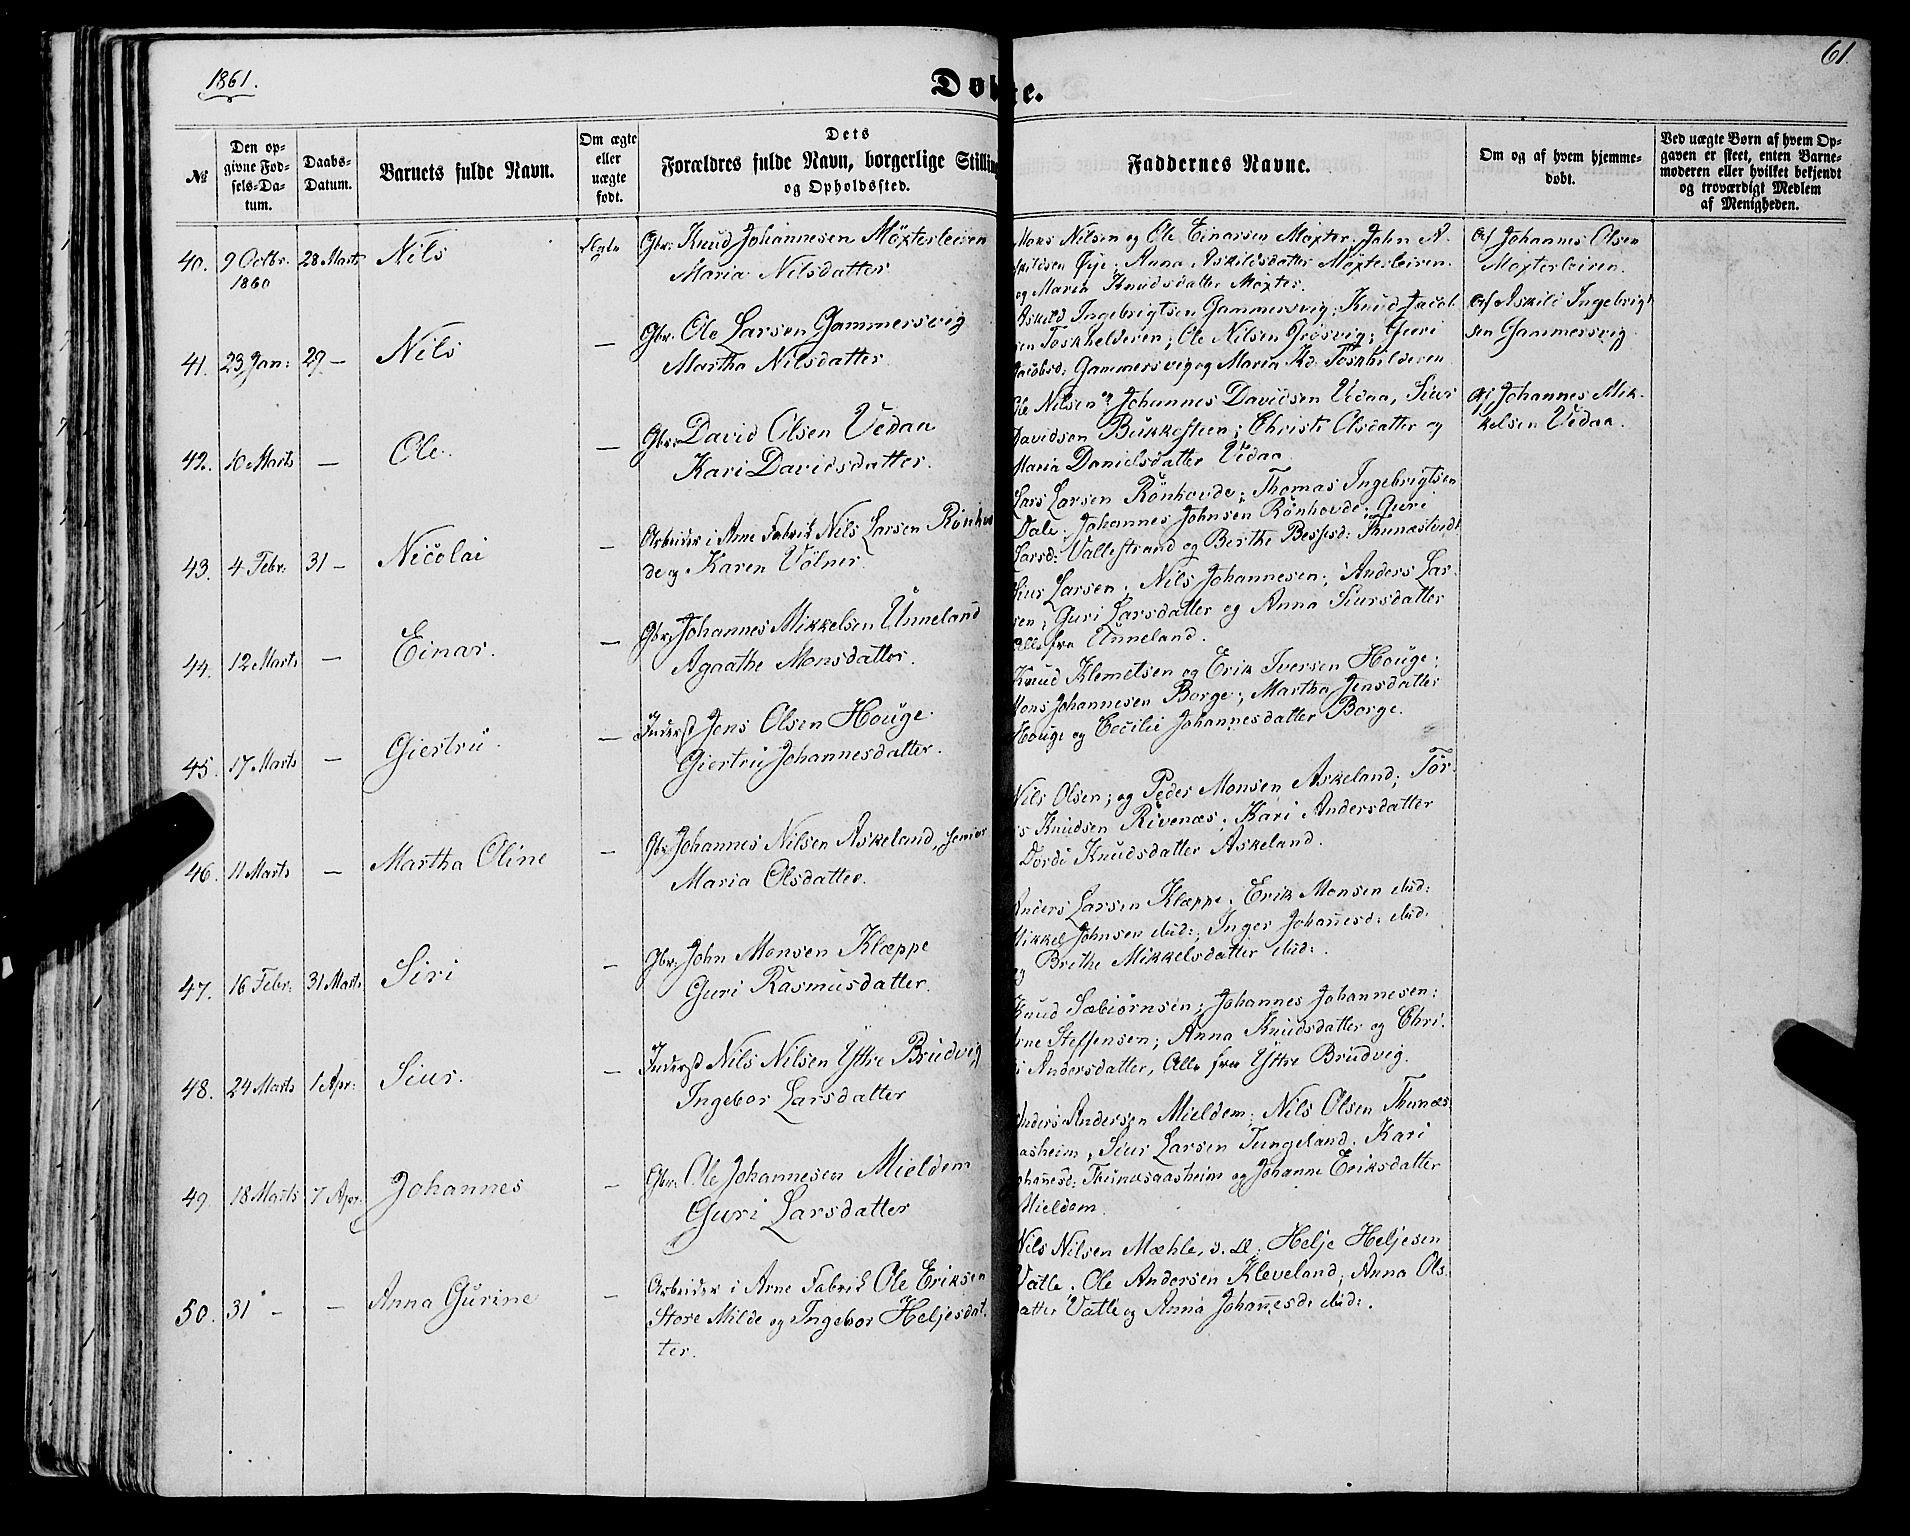 1861.
Døbte.
61.
№
Den op-
givne Fød-
sels-Da-
tum.
Daabs-
Datum.
Barnets fulde Navn.
Om ægte
eller
uægte
født.
Dets
Forældres fulde Navn, borgerlige Stilling
og Opholdssted.
Faddernes Navne.
Om og af hvem hjemme-
døbt.
Ved uægte Børn af hvem Op-
gaven er skeet, enten Barne-
moderen eller hvilket bekjendt
og troværdigt Medlem
af Menigheden.
40. 9 Octbr. 28 Marts Nils Ægte Gbr. Knud Johannesen Möxterleiren
1860 Maria Nilsdatter
Mons Nilsen og Ole Einarsen Möxter. John A
skildsen Øye; Anna Askildsdatter Möxterleiren
og Maria Knudsdatter Möxter.
Af Johannes Olsen
Moxterleiren.
41. 23 Jan: 29 - Nils — Gbr. Ole Larsen Gammersvig
Martha Nilsdatter
Askild Ingebrigtsen Gammersvig; Knud Jacob
sen Toskhelderen; Ole Nilsen Grösvig; Guri
Jacobsd: Gammersvig og Maria Kd: Toskhilderen
Af Askild Ingebrigt
sen Gammersvig
42. 10 Marts — Ole. — Gbr: David Olsen Vedaa
Kari Davidsdatter.
Ole Nilsen og Johannes Davidsen Vedaa, Siur
Davidsen Beikkesteen; Christi Olsdatter og
Maria Danielsdatter Vedaa
Af Johannes Mik-
kelsen Vedaa.
43. 4 Febr: 31 - Nicolai — Arbeider i Arne Fabrik Nils Larsen Rönho
de og Karen Völner.
Lars Larsen Rönhovde; Thomas Ingebrigtsen
Dale; Johannes Johnsen Rönhovde; Guri
Larsd: Vallestrand og Berthe Bessesd:
44. 12 Marts — Einar. — Gbr: Johannes Mikkelsen Unneland
Agaathe Monsdatter.
Siur Larsen; Nils Johannesen; Anders Lar-
sen; Guri Larsdatter og Anna Siursdatter
Alle fra Unneland.
45. 17 Marts — Giertru. — Inderst Jens Olsen Houge
Giertru Johannesdatter.
Knud Klemetsen og Erik Iversen Houge;
Mons Johannesen Borge; Martha Jensdatter
Houge og Cecilie Johannesdatter Borge.
46. 11 Marts — Martha Oline — Gbr Johannes Nilsen Askeland, senior
Maria Olsdatter.
Nils Olsen; og Peder Monsen Askeland; Tör-
is Knudsen Rivenæs; Kari Andersdatter
Dordi Knudsdatter Askeland.
47. 16 Febr: 31 Marts Siri — Gbr: John Monsen Klæppe
Guri Rasmusdatter.
Anders Larsen Klæppe; Erik Monsen ibid:
Mikkel Johnsen ibid:; Inger Johanesd: ibid:
og Brithe Mikkelsdatter ibid:.
48. 24 Marts 1 Apr: Siur. — Inderst Nils Nilsen Yttre Brudvig
Ingebor Larsdatter
Knud Sæbiörnsen; Johannes Johannesen;
Arne Steffensen; Anna Knudsdatter og Chri-
i Andersdatter, Alle fra Yttre Brudvig.
49. 18 Marts 7 Apr. Johannes — Gbr: Ole Johannesen Mieldem
Guri Larsdatter
Anders Andersen Mieldem; Nils Olsen Thunæs
aasheim, Siur Larsen Tungeland. Kari
Johanesd: Thunæsaasheim og Johanne Eriksdatter
Mieldem.
50. 31 - — Anna Gurine — Arbeider i Arne Fabrik Ole Eriksen
Store Milde og Ingebor Heljesdat-
ter.
Nils Nilsen Mæhle, Helje Heljesen
Vatle. Ole Andersen Kleveland; Anna Ols-
datter Vatle og Anna Johanesd: ibid:.